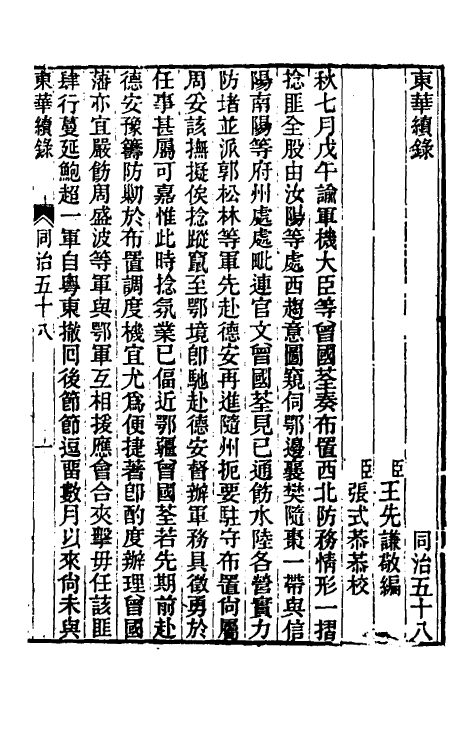 東華續錄　同治五十八
臣王先謙敬編
臣張式恭恭校
秋七月戊午諭軍機大臣等曾國荃奏布置西北防務情形一摺
捻匪全股由汝陽等處西趨意圖窺伺鄂邊襄樊隨棗一帶與信
陽南陽等府州處處毗連官文曾國荃見已通飭水陸各營實力
防堵並派郭松林等軍先赴德安再進隨州扼要駐守布置尙屬
周妥該撫擬俟捻蹤竄至鄂境卽馳赴德安督辦軍務具徵勇於
任事甚屬可嘉惟此時捻氛業已偪近鄂疆曾國荃若先期前赴
德安豫籌防勦於布置調度機宜尤爲便捷著卽酌度辦理曾國
藩亦宜嚴飭周盛波等軍與鄂軍互相援應會合夾擊毋任該匪
肆行蔓延鮑超一軍自粵東撤回後節節逗留數月以來尙未與
東華續錄　同治五十八　一